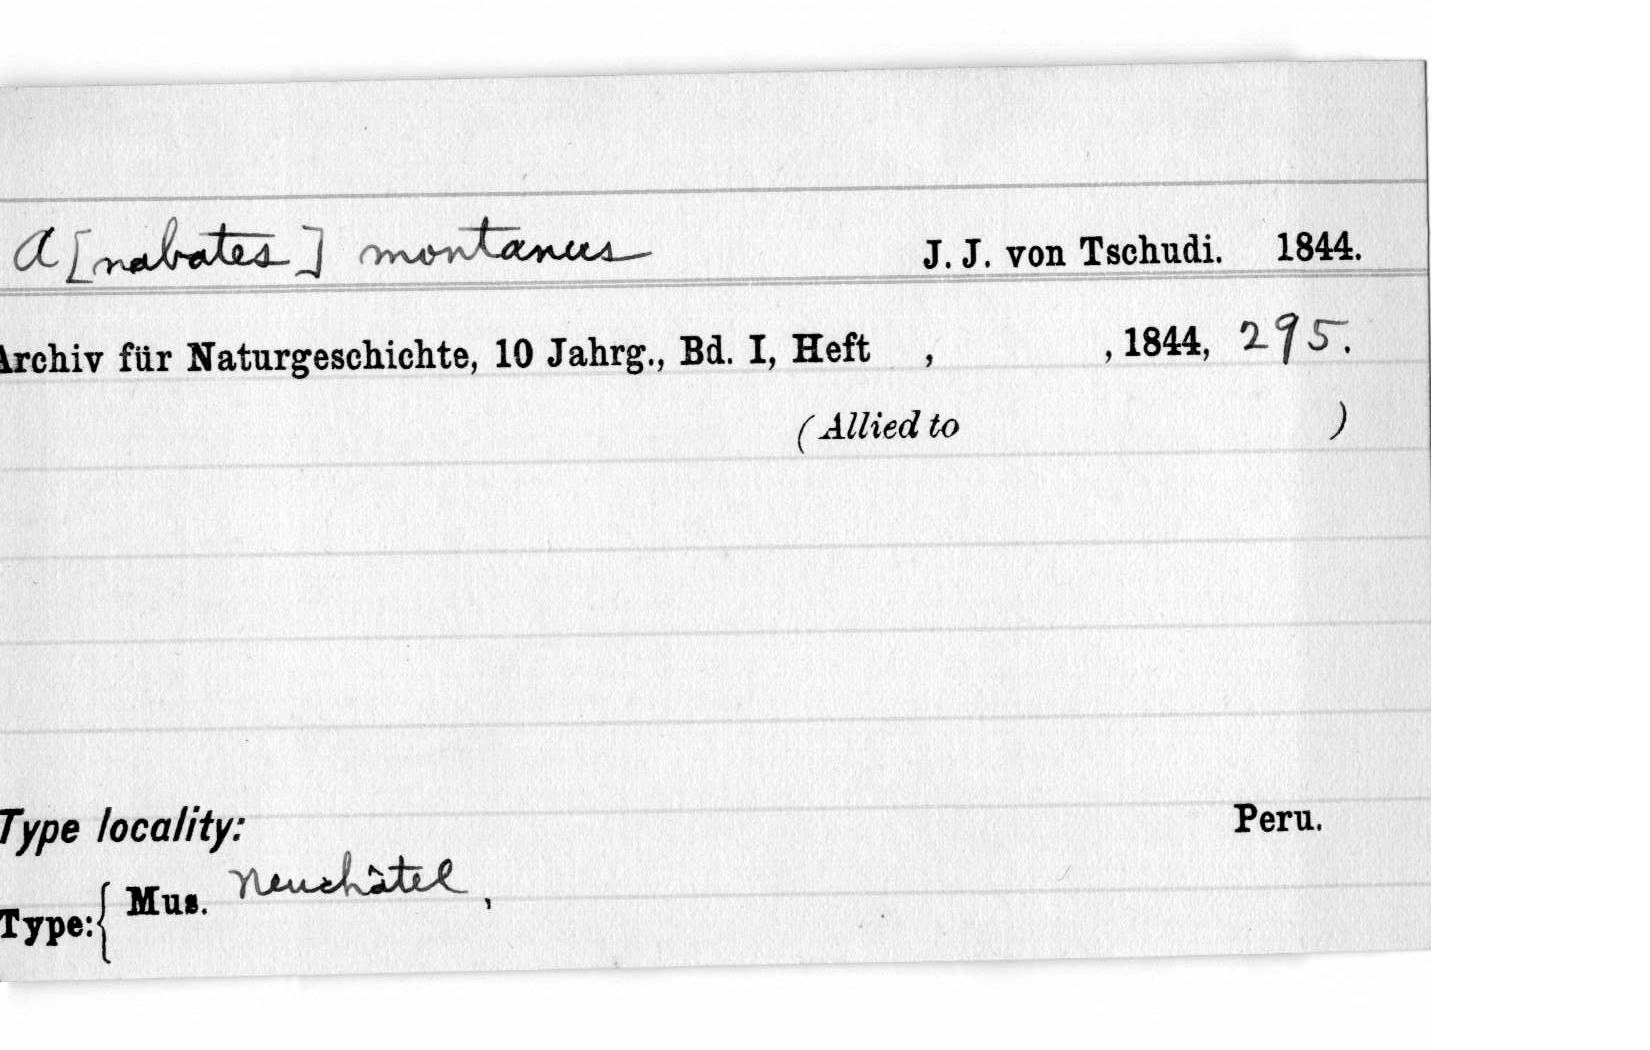 A[nabates] montanus J. J. von Tschudi. 1844.
Archiv für Naturgeschichte, 10 Jahrg., Bd. I, Heft , , 1844, 295.
(Allied to )
Type locality: Peru.
Type: { Mus. Neuchâtel ,